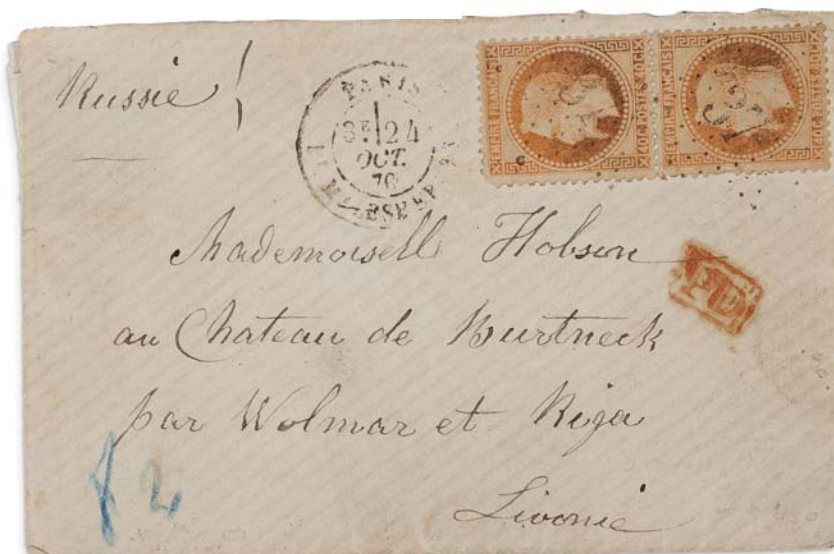 Russie !
PARIS
3E 24
OCT.
70
EMPIRE FRANÇAIS
40C POSTES 40C
EMPIRE FRANÇAIS
40C POSTES 40C
Mademoisell Hobson
PD
au Chateau de Burtneck
par Wolmar et Riga
Livonie